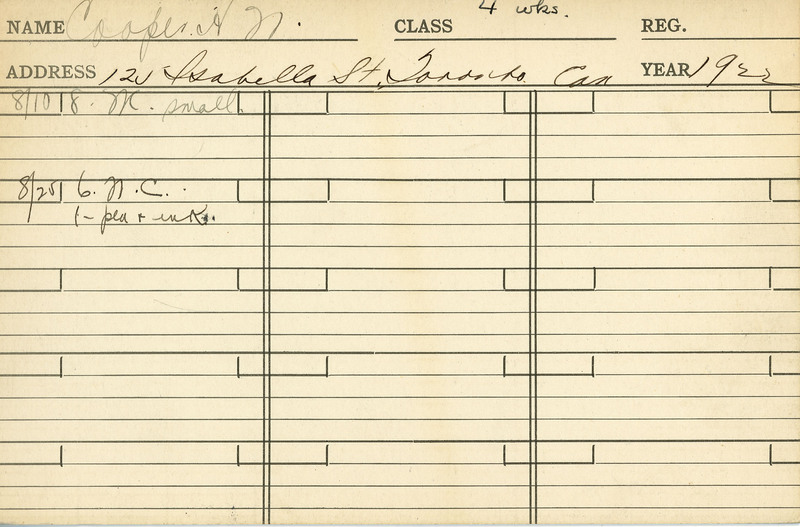 NAME Cooper. A. N. CLASS 4 wks. REG.
ADDRESS 125 Isabella St. Toronto. Can YEAR 1922
8/10 8. M. small.
8/25 6. N. C.
1 - pen + ink.